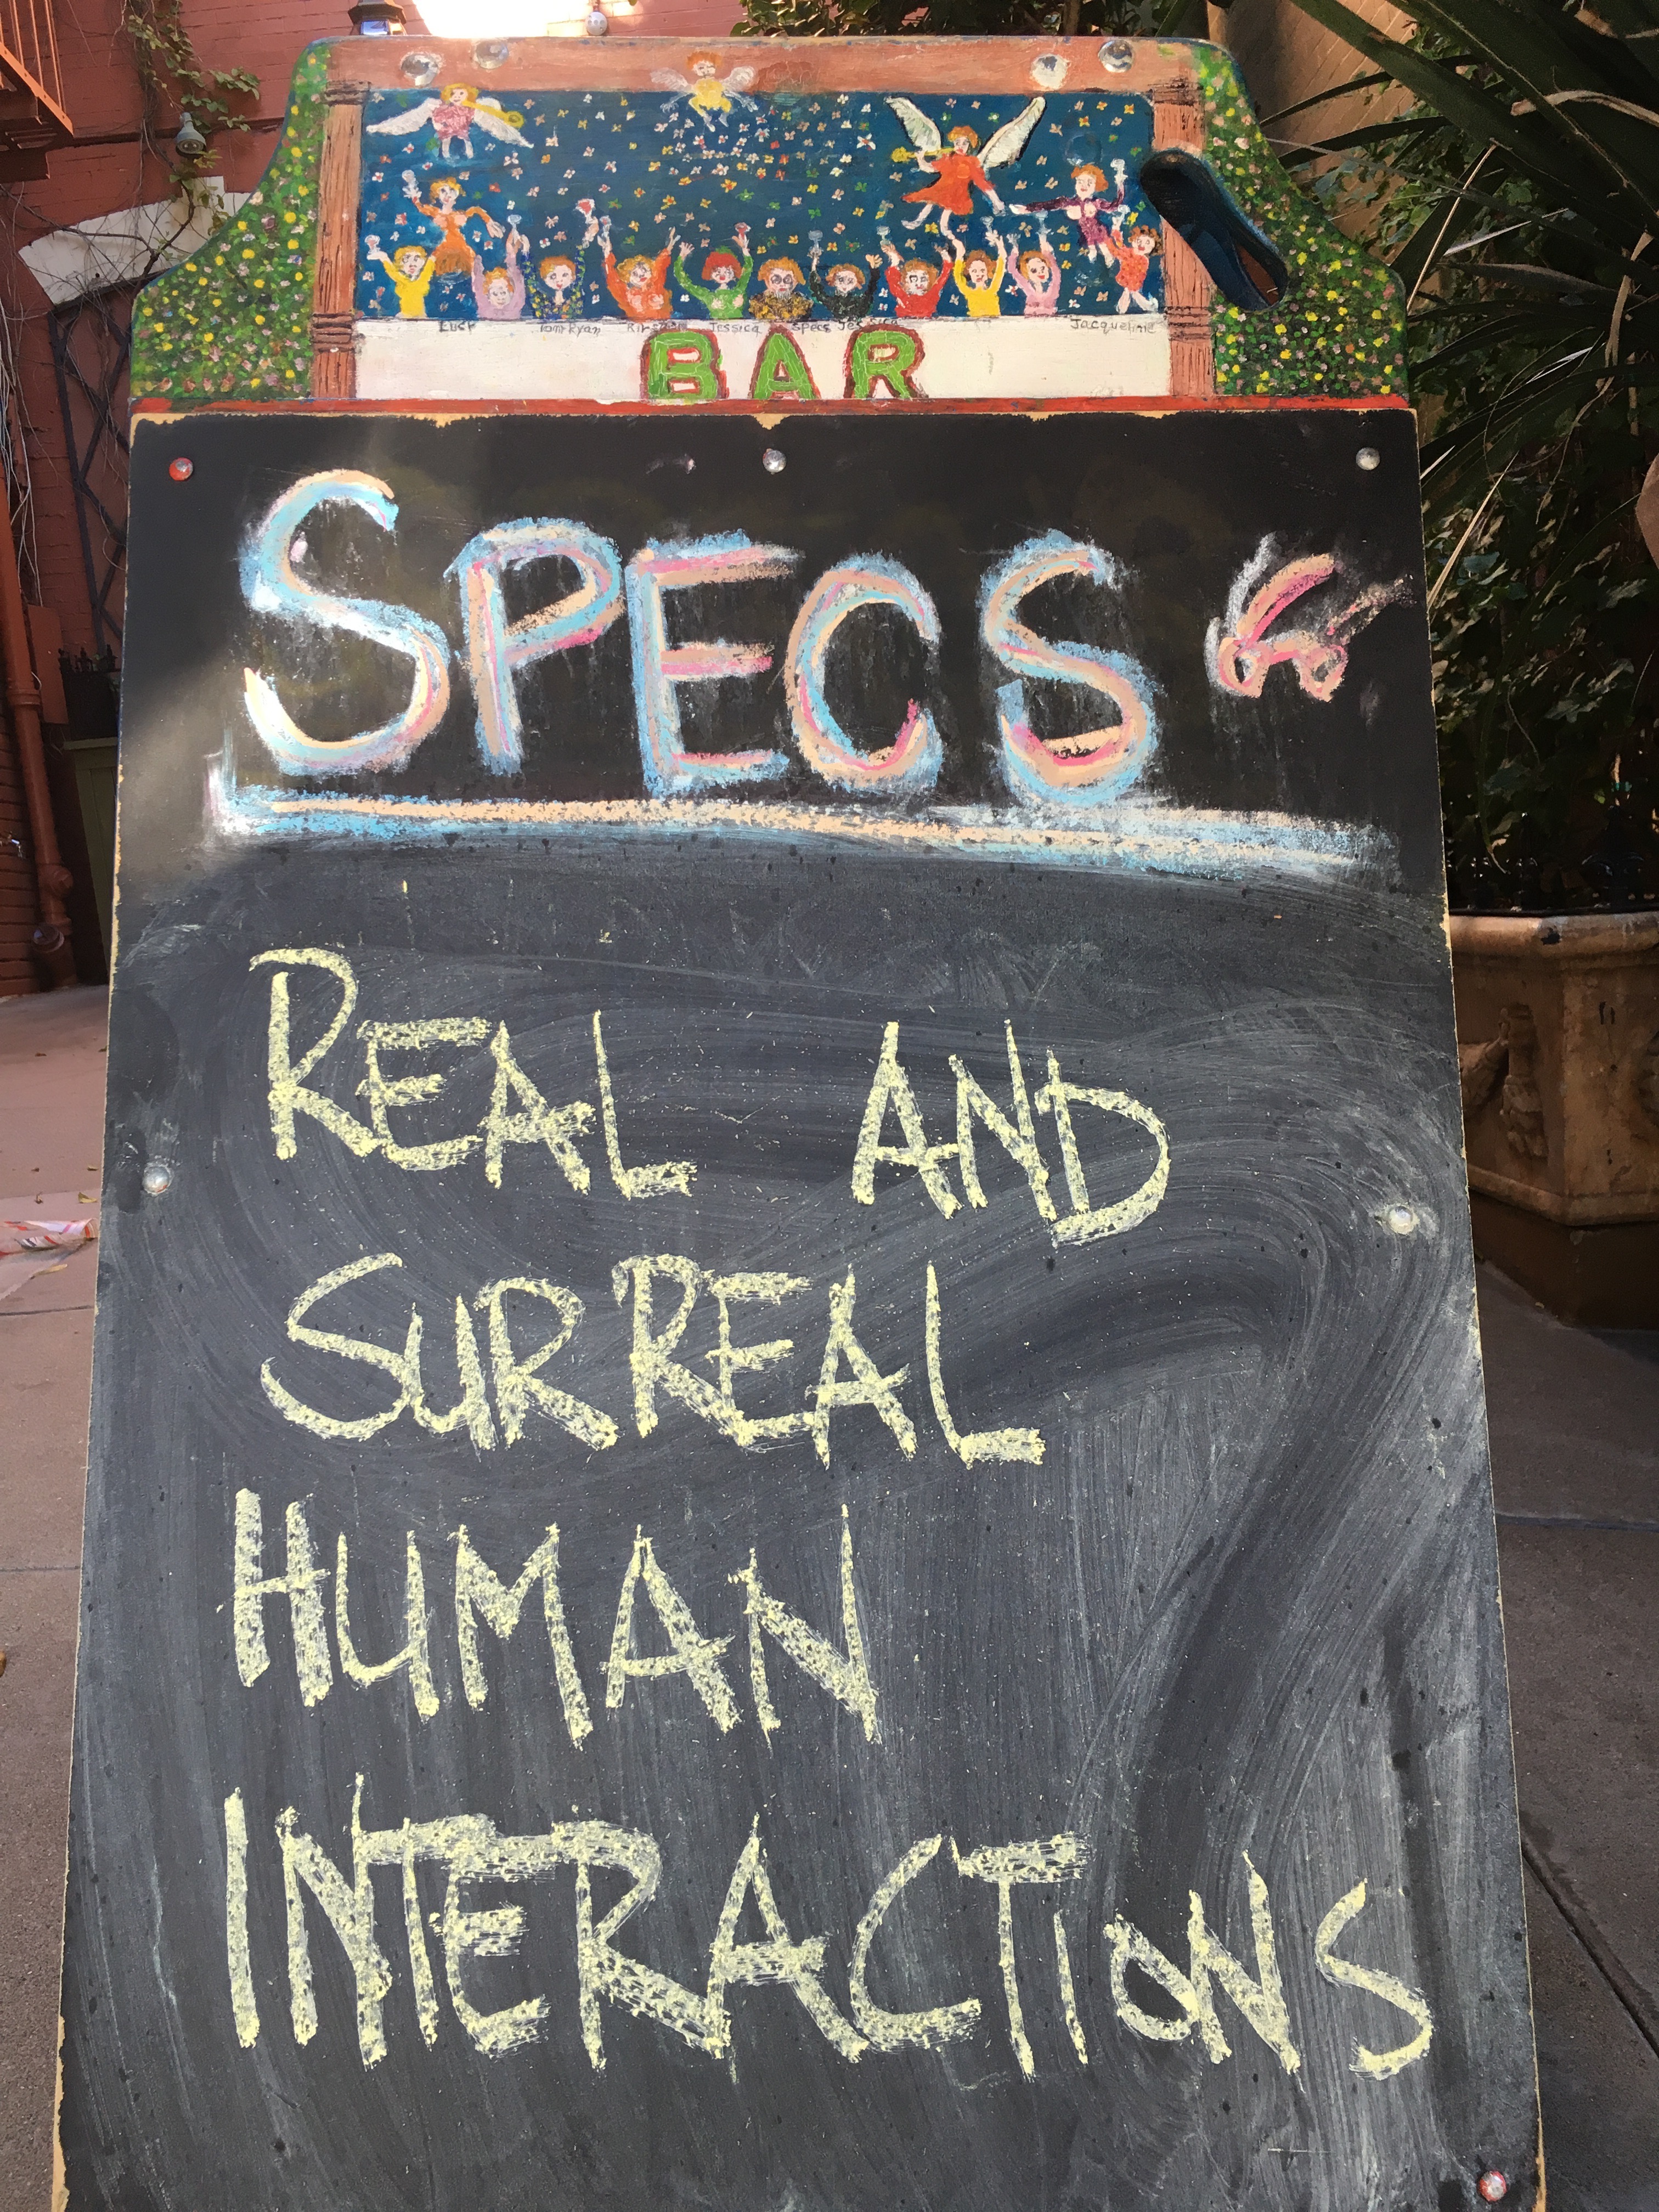 Lucy Tom Ryan Jessica Specs Jacqueline
BAR
SPECS
REAL AND
SURREAL
HUMAN
INTERACTIONS